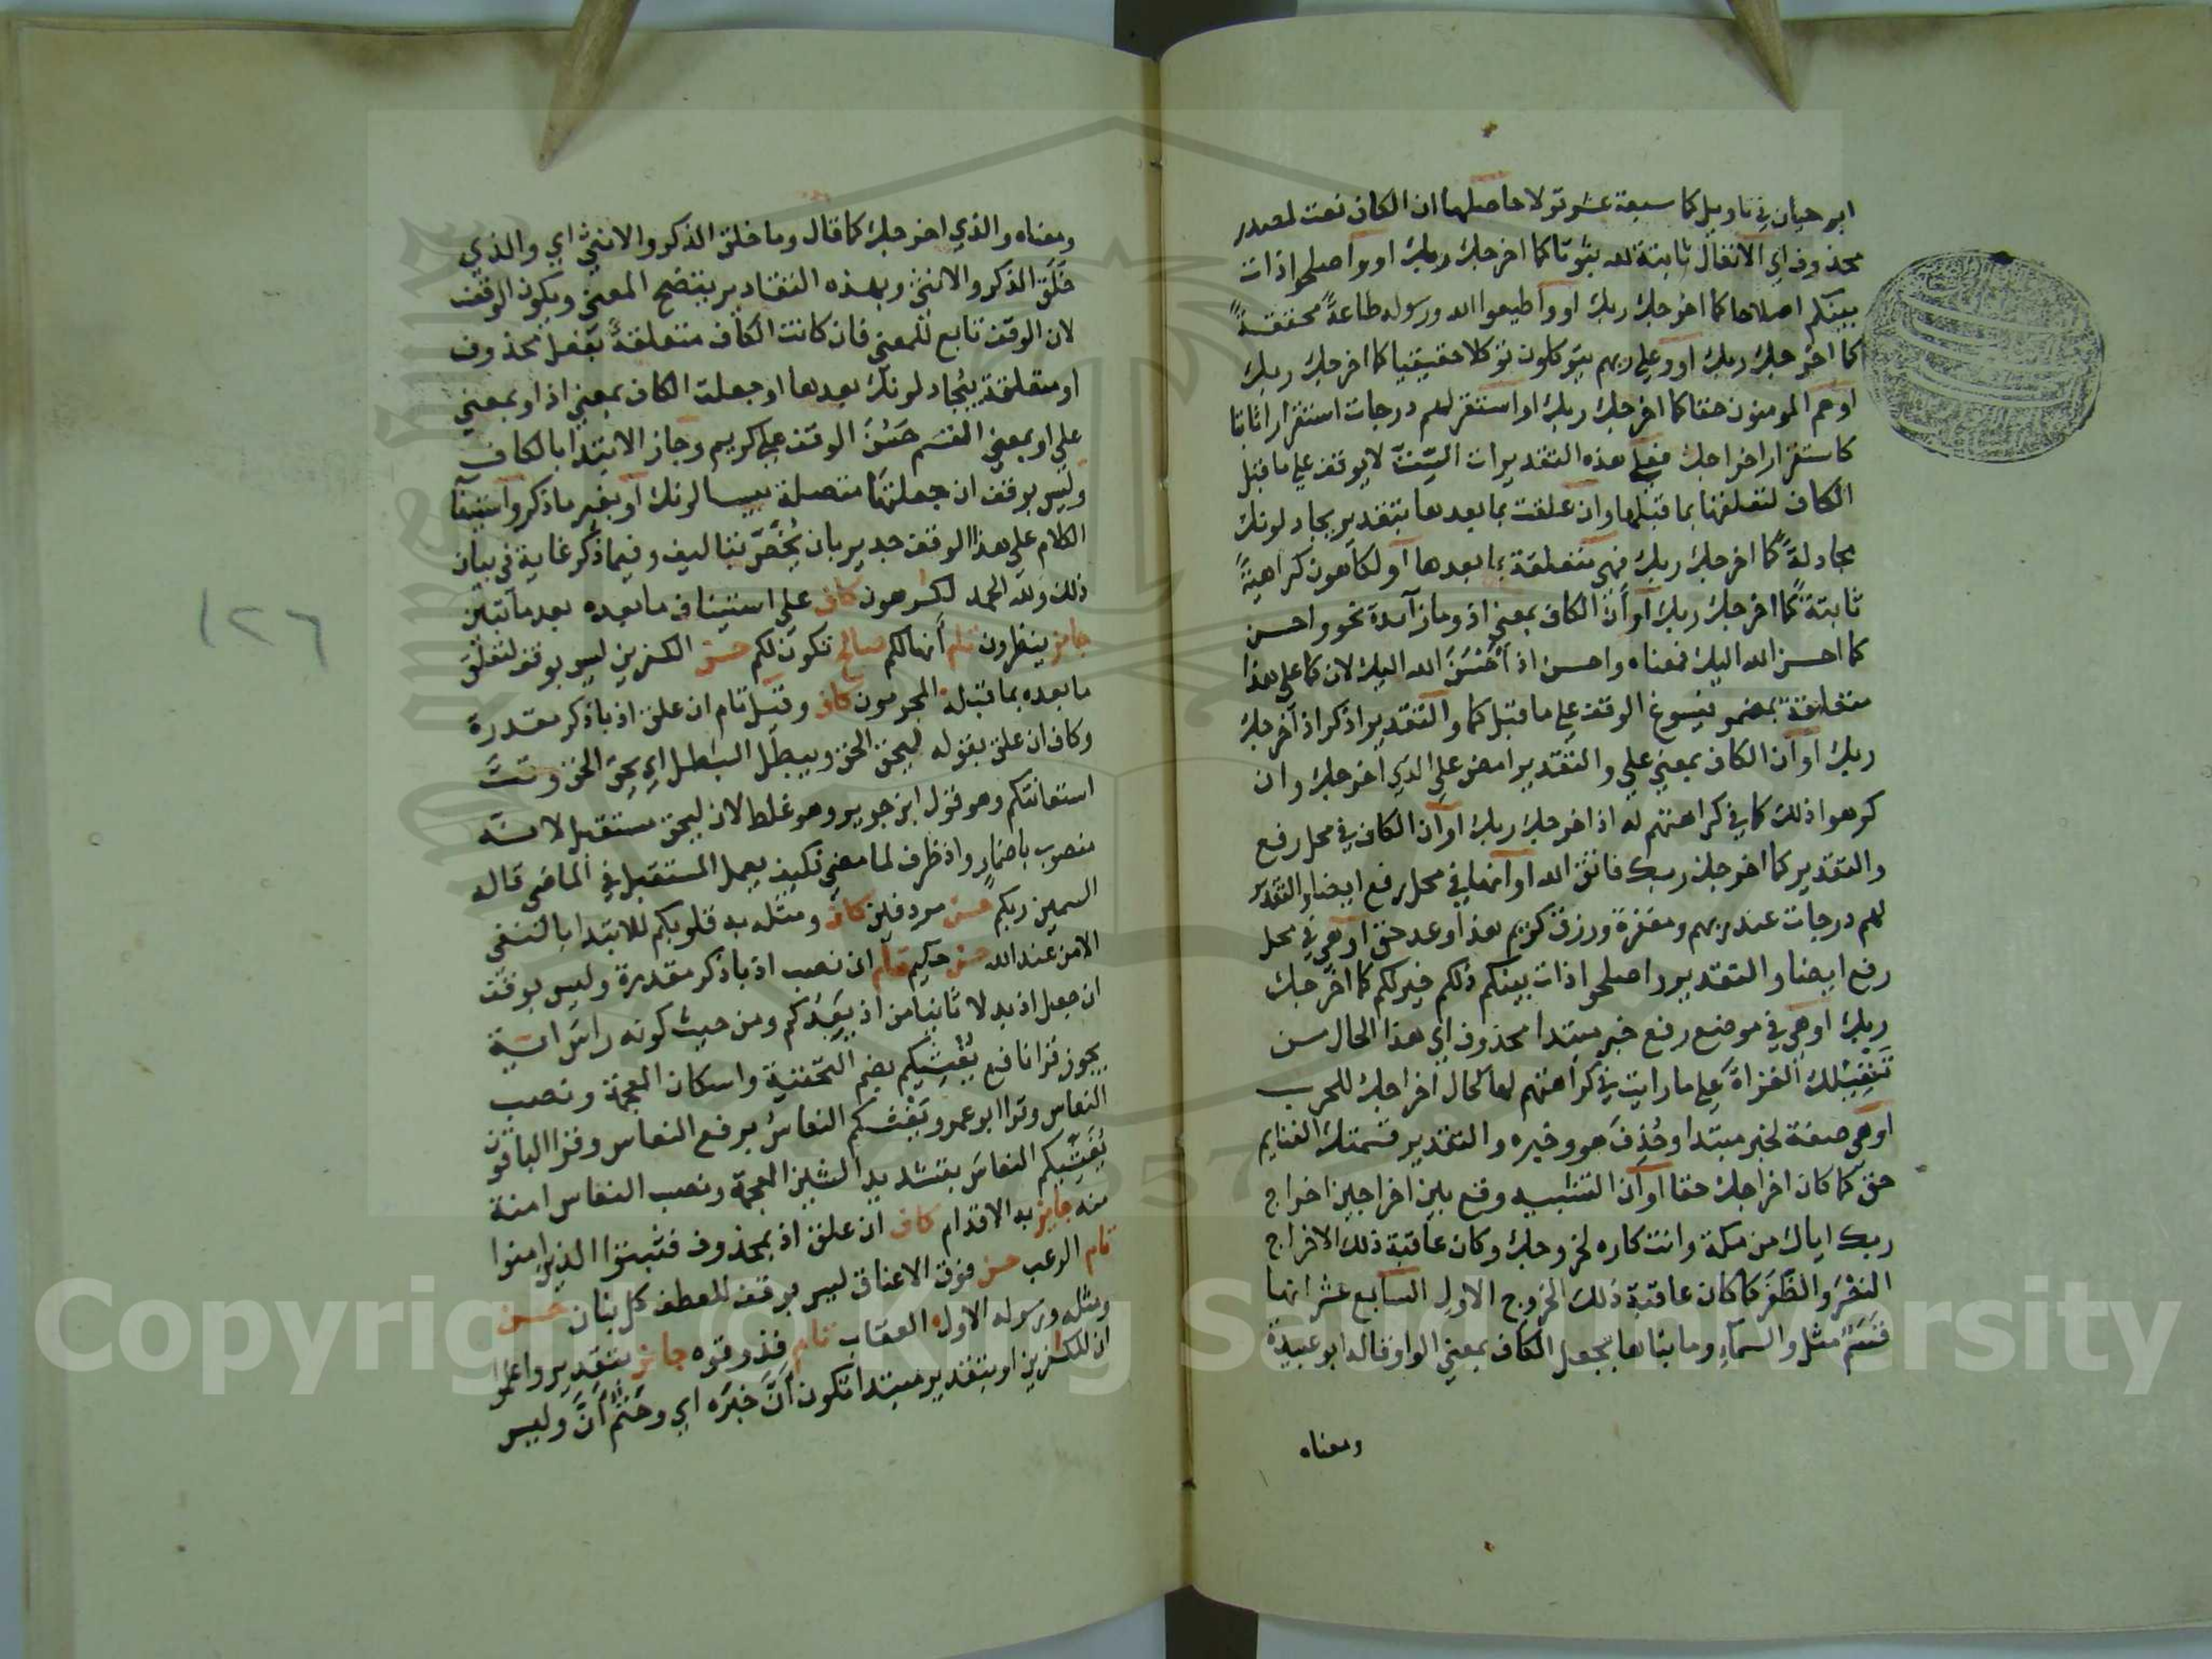 ابو حيان في تاويل كما سبعة عشر قولا حاصلها ان الكاف نعت لمصدر
محذوف اي الانفال ثابتة لله ثبوتا كما اخرجك ربك او واصلحوا ذات
بينكم اصلاحا كما اخرجك ربك او واطيعوا الله ورسوله طاعة محققة
كما اخرجك ربك او وعلى ربهم يتوكلون توكلا حقيقيا كما اخرجك ربك
او هم المومنون حقا كما اخرجك ربك او استقر لهم درجات استقرارا ثابتا
كاستقرار اخراجك فعلى هذه التقديرات الستة لا يوقف على ما قبل
الكاف لتعلقها بما قبلها وان علقت بما بعدها بتقدير يجادلونك
مجادلة كما اخرجك ربك فهي متعلقة بما بعدها او لكارهون كراهية
ثابتة كما اخرجك ربك او ان الكاف بمعني اذ وما زائدة نحو واحسن
كما احسن الله اليك فمعناه واحسن اذ احسن الله اليك لان كما على هذا
متعلقة بمضمر فيسوغ الوقف على ما قبل كما والتقدير اذكر اذ اخرجك
ربك او ان الكاف بمعني على والتقدير امض على الذي اخرجك وان
كرهوا ذلك كما في كراهتهم له اذ اخرجك ربك او ان الكاف في محل رفع
والتقدير كما اخرجك ربك فاتق الله او انها في محل رفع ايضا والتقدير
لهم درجات عند ربهم ومغفرة ورزق كريم هذا وعد حق او هي في محل
رفع ايضا والتقدير واصلحوا ذات بينكم ذلكم خير لكم كما اخرجك
ربك او هي في موضع رفع خبر مبتدا محذوف اي هذا الحال من
تنفيلك الغزاة على ما رايت في كراهتهم لها كحال اخراجك للحرب
او هي صفة لخبر مبتدا وحذف هو وخبره والتقدير قسمتك الغنايم
حق كما كان اخراجك حقا او ان التشبيه وقع بين اخراجين اخراج
ربك اياك من مكة وانت كاره لخروجك وكان عاقبة ذلك الاخراج
النصر والظفر كما كان عاقبة ذلك الخروج الاول السابع عشر انها
قسم مثل والسماء وما بناها بجعل الكاف بمعني الواو قاله ابو عبيدة
ومعناه
ومعناه والذي اخرجك كما قال وما خلق الذكر والانثي اي والذي
خلق الذكر والانثي وبهذه التقادير يتضح المعني ويكون الوقف
لان الوقف تابع للمعني فان كانت الكاف متعلقة بفعل محذوف
او متعلقة بيجادلونك بعدها او جعلت الكاف بمعني اذ او بمعني
على او بمعني القسم حسن الوقف على كريم وجاز الابتدا بالكاف
وليس بوقف ان جعلتها متصلة بيسالونك او بغير ما ذكر واستيفا
الكلام على هذا الوقف جدير بان يخص بتاليف وفيما ذكر غاية في بيان
ذلك ولله الحمد لكرهون كاف على استيناف ما بعده بعد ما تبين
جايز ينظرون تام انها لكم صالح تكون لكم حسن الكفرين ليس بوقف لتعلق
ما بعده بما قبله المجرمون كاف وقيل تام ان علق اذ باذكر مقدرة
وكاف ان علق بقوله ليحق الحق ويبطل البطل اي يحق الحق وقت
استغاثتكم وهو قول ابن جرير وهو غلط لان ليحق مستقبل لانه
منصوب باضمار واذ ظرف لما مضي فكيف يعمل المستقبل في الماضي قاله
السمين ربكم حسن مردفين كاف ومثله به قلوبكم للابتدا بالنفي
الا من عند الله حسن حكيم تام ان نصب اذ باذكر مقدرة وليس بوقف
ان جعل اذ بدلا ثانيا من اذ يعدكم ومن حيث كونه راس اية
يجوز قرا نافع يغشيكم بضم التحتية واسكان المعجمة ونصب
النعاس وقرا ابو عمرو يغشكم النعاس برفع النعاس وقرا الباقون
يغشيكم النعاس بتشديد الشين المعجمة ونصب النعاس امنة
منه جايز به الاقدام كاف ان علق اذ بمحذوف فثبتوا الذين امنوا
تام الرعب حسن فوق الاعناق ليس بوقف للعطف كل بنان حسن
ومثله ورسوله الاول العقاب تام فذوقوه جايز بتقدير واعلموا
ان للكفرين او بتقدير مبتدا تكون ان خبره اي وحتم ان وليس
١٢٦
Copyright © King Saud University